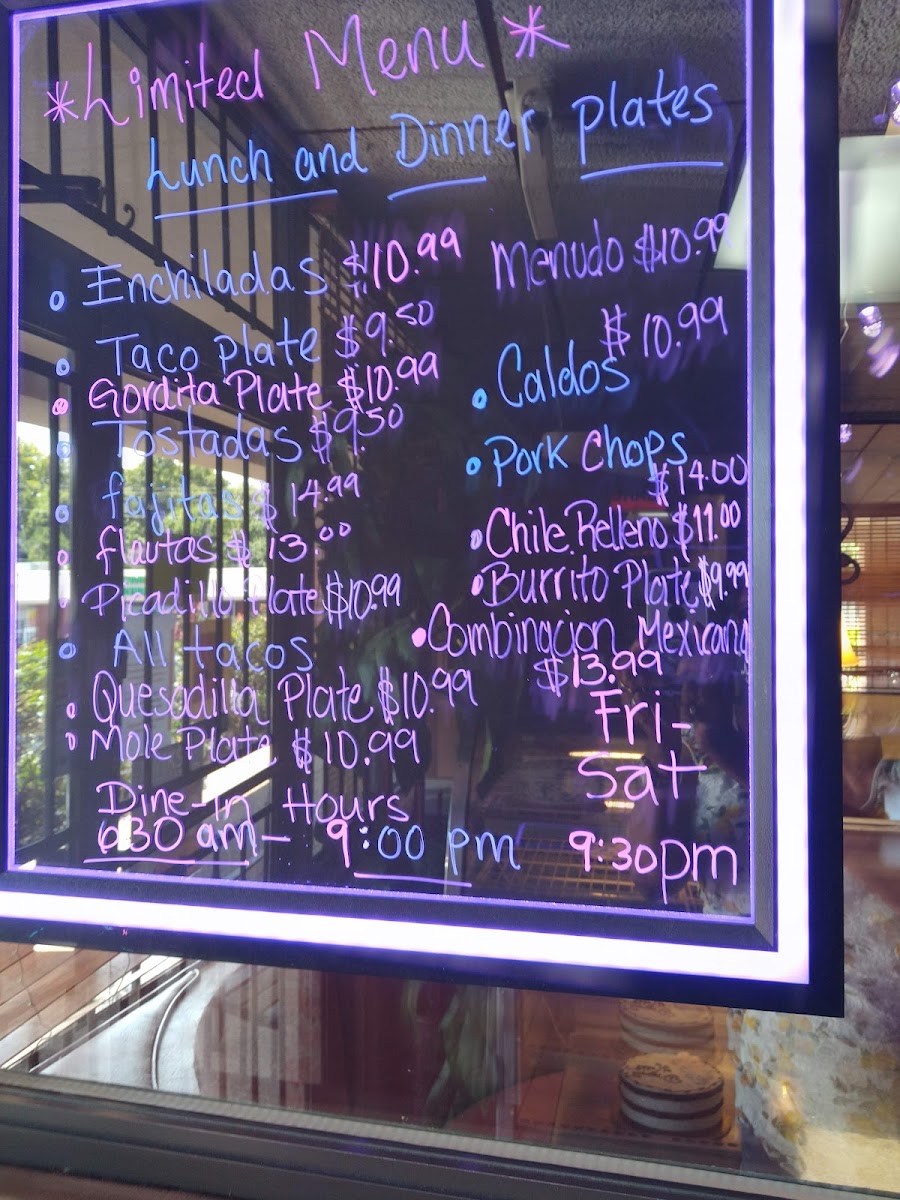 *Limited Menu*
Lunch and Dinner plates
Enchiladas $10.99
Taco plate $9.50
Gordita Plate $10.99
Tostadas $9.50
fajitas $14.99
flautas $13.00
Picadillo Plate $10.99
All tacos
Quesadilla Plate $10.99
Mole Plate $10.99
Menudo $10.99
$10.99
Caldos
Pork Chops
$14.00
Chile Relleno $11.00
Burrito Plate $9.99
Combinacion Mexicana
$13.99
Dine-In Hours
6:30 am- 9:00 pm
Fri-
Sat
9:30pm